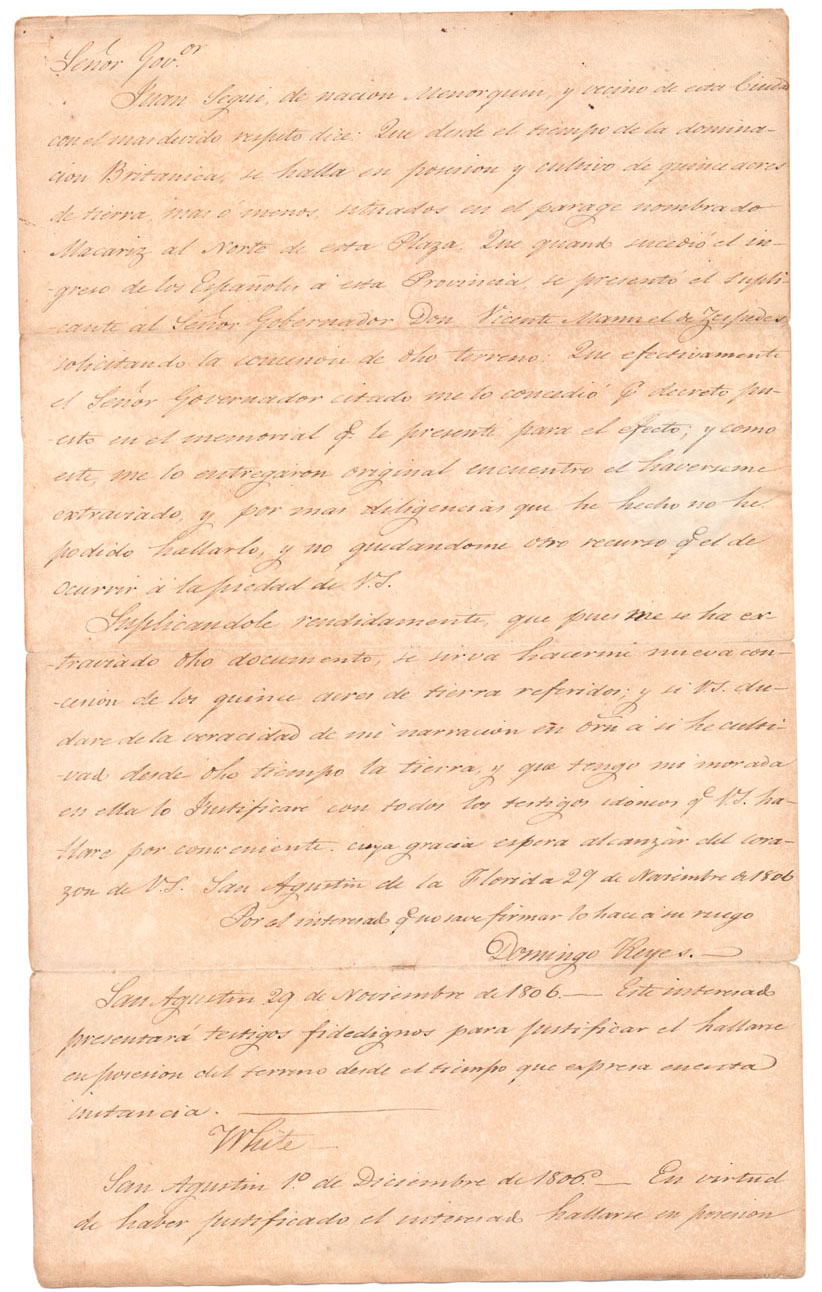 Señor Gov.or
Juan Segui, de nacion Menorquin, y vecino de esta Ciudad
con el mas devido respeto dice: Que desde el tiempo de la domina-
cion Britanica, se halla en posesion y cultivo de quince acres
de tierra, mas ó menos, situados en el parage nombrado
Macariz al Norte de esta Plaza. Que quando sucedió el in-
-greso de los Españoles á esta Provincia, se presentó el supli-
cante al Señor Gobernador Don Vicente Manuel de Zespedes,
solicitando la concesion de dho terreno: Que efectivamente
el Señor Governador citado me lo concedió p.r decreto pu-
esto en el memorial q.e le presenté para el efecto; y como
este, me lo entregaron original encuentro el haverseme
extraviado, y por mas diligencias que he hecho no he
podido hallarlo, y no quedandome otro recurso q.e el de
ocurrir á la piedad de V.S.
Suplicandole rendidamente, que pues me se ha ex-
-traviado dho documento, se sirva hacerme nueva con-
-cesion de los quince acres de tierra referidos; y si V.S. du-
dare de la veracidad de mi narracion en orñ á si he culti-
vad desde dho tiempo la tierra, y que tengo mi morada
en ella lo Justificaré con todos los testigos idoneos q.e V.S. ha-
llare por conveniente. cuya gracia espera alcanzar del cora-
zon de V.S. San Agustin de la Florida 29 de Noviembre de 1806
Por el interesad q.e no save firmar lo hace á su ruego
Domingo Reyes. —
San Agustin 29 de Noviembre de 1806 — Este interesad
presentará testigos fidedignos para justificar el hallarse
en posesion del terreno desde el tiempo que expresa en esta
instancia. —
White —
San Agustin 1.o de Diciembre de 1806.o — En virtud
de haber justificado el interesad hallarse en posesion